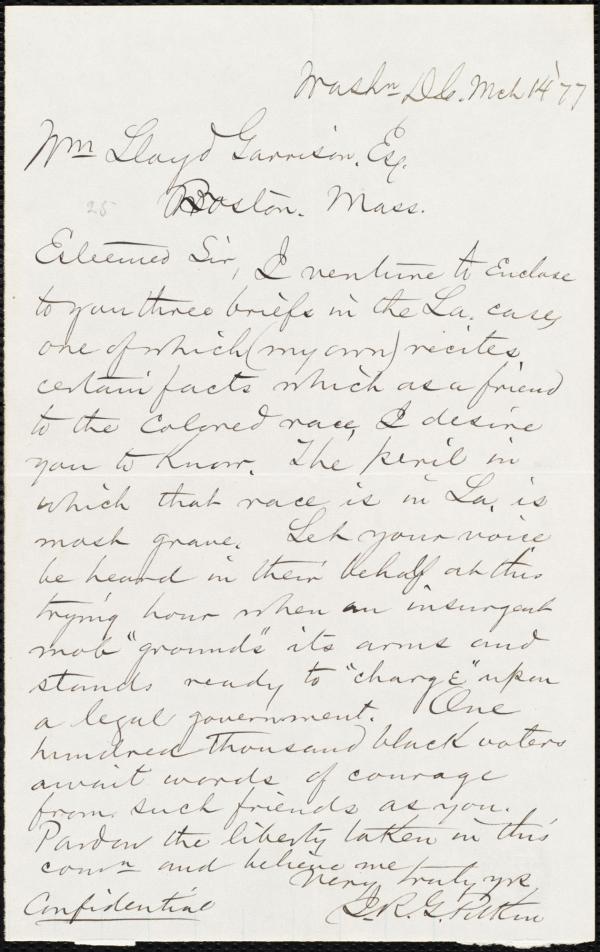 Washn D.C. Mch 14 '77
Wm Lloyd Garrison, Esq.
Boston. Mass.
25
Esteemed Sir, I venture to enclose
to you three briefs in the La. case,
one of which (my own) recites
certain facts which as a friend
to the colored race, I desire
you to know. The peril in
which that race is in La. is
most grave. Let your voice
be heard in their behalf at this
trying hour when an insurgent
mob "grounds" its arms and
stands ready to "charge" upon
a legal government. One
hundred thousand black voters
await words of courage
from such friends as you.
Pardon the liberty taken in this
comn and believe me
Very truly yrs
J. R. G. Pitkin
Confidential